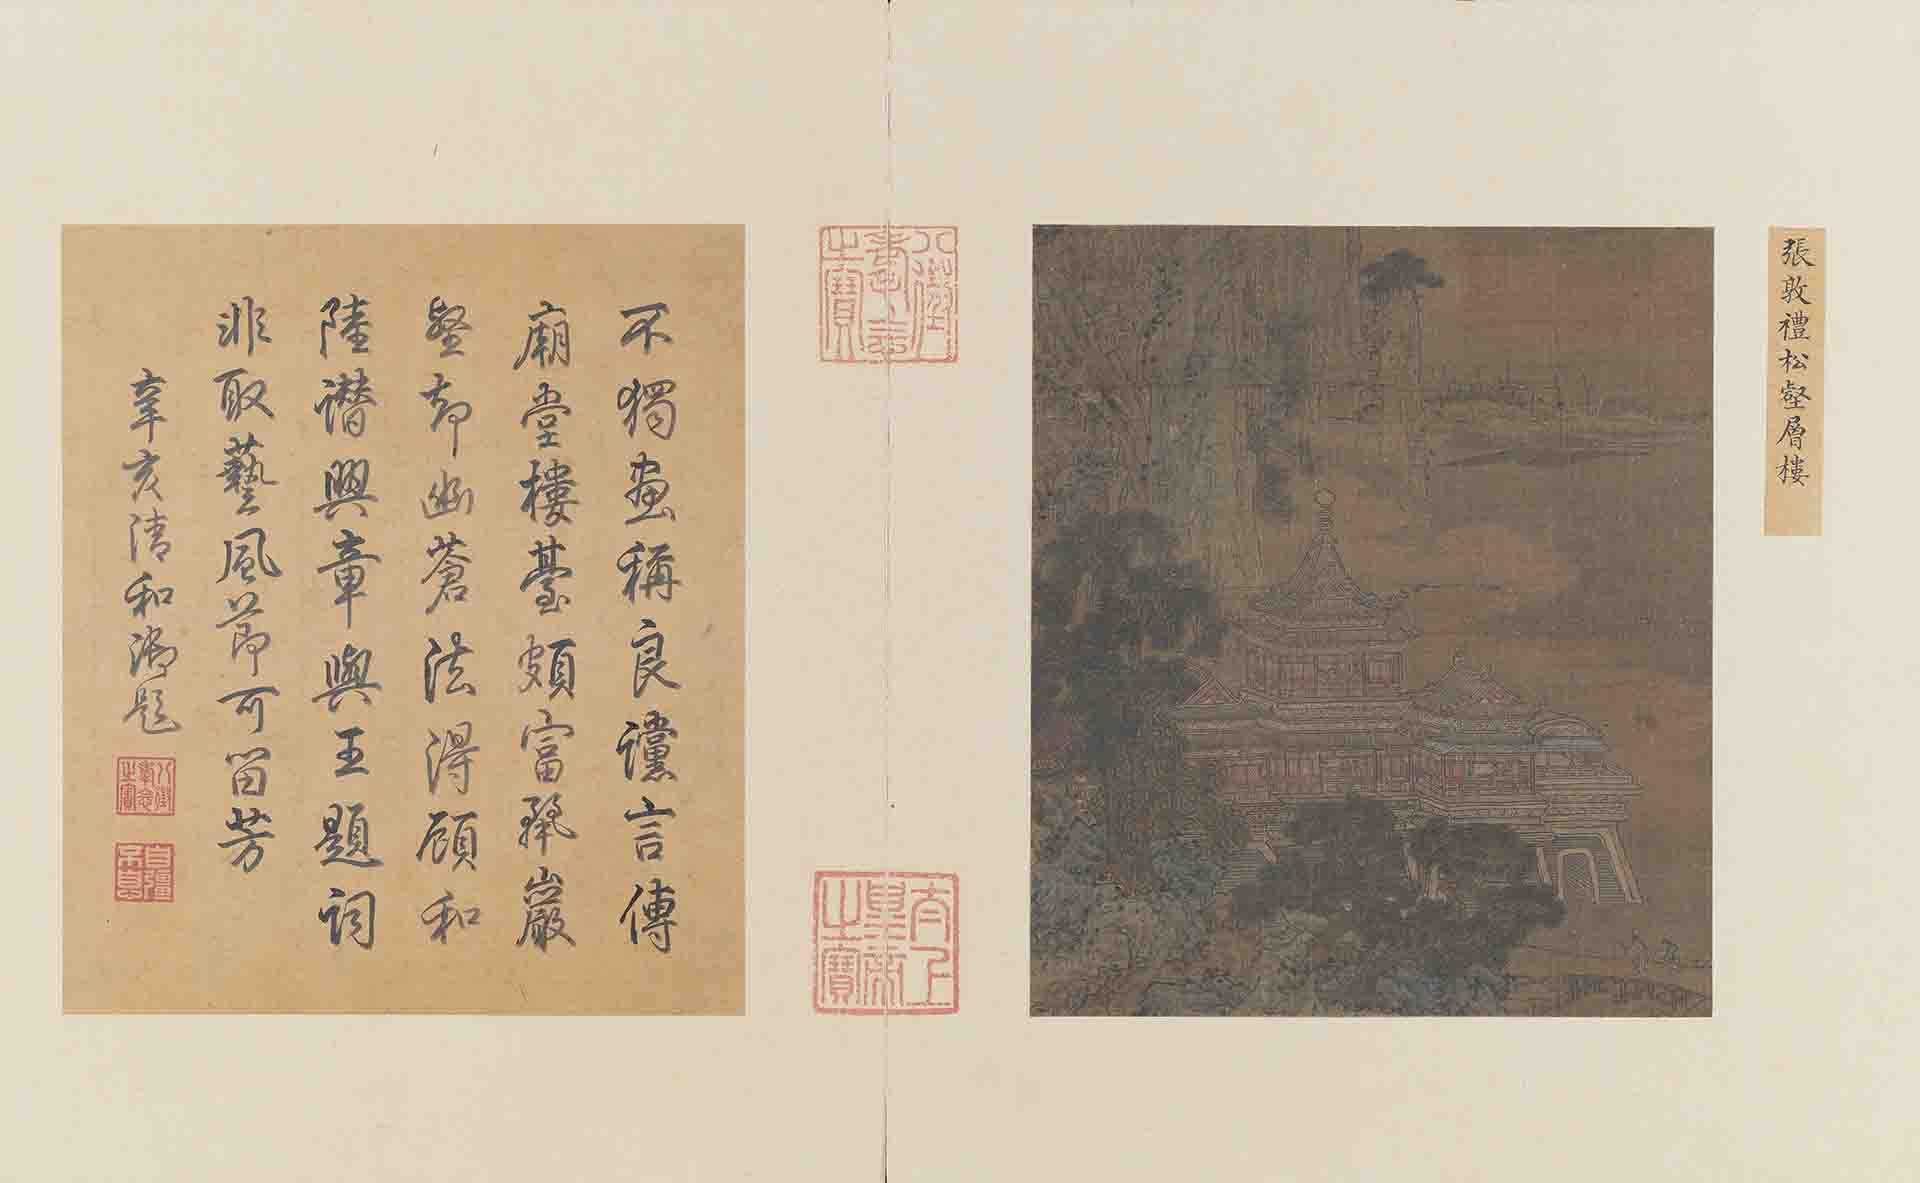 張敦禮松壑層樓
八徵耄念之寶
太上皇帝之寶
不獨畫稱良讜言傳
廟堂樓臺頗富麗巖
壑却幽蒼法得顧和
陸譛興章與王題詞
非取藝風節可留芳
辛亥清和御題
八徵耄念之寶
自彊不息